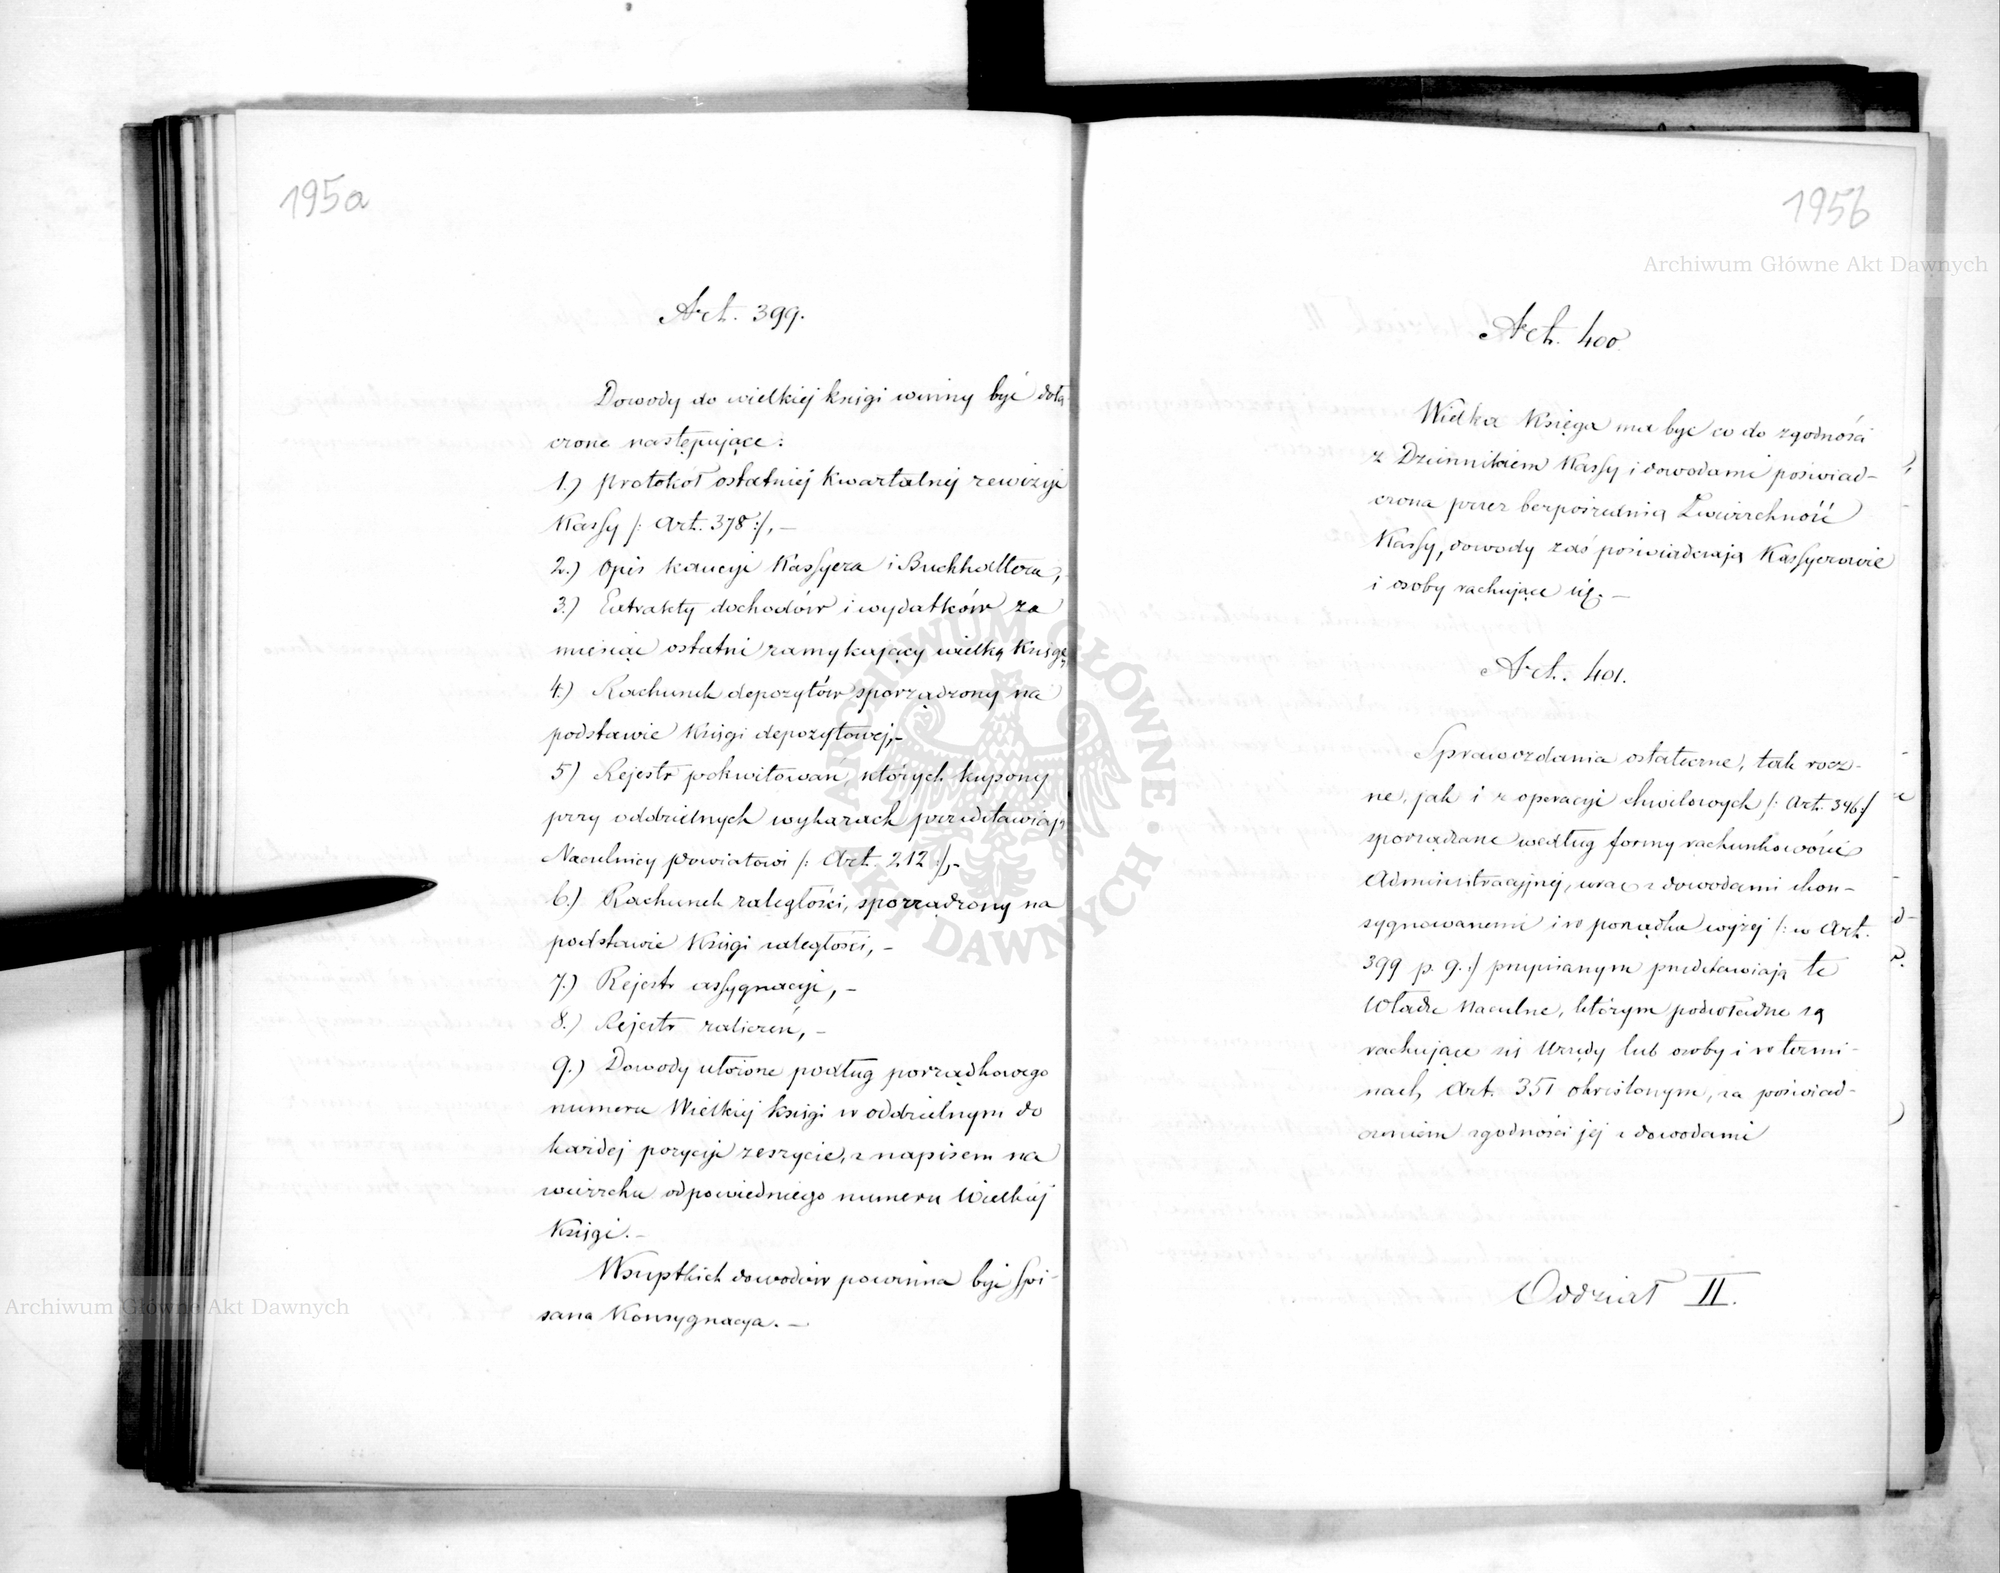 195a
Art. 399.
Dowody do wielkiej księgi winny być dołą-
czone następujące:
1.) Protokół ostatniej kwartalnej rewizyi
Kassy /: Art. 378 :/, —
2.) Opis kaucyi Kassyera i Buchhaltera,
3.) Extrakty dochodów i wydatków za
miesiąc ostatni zamykający wielką Księgę
4.) Rachunek depozytów sporządzony na
podstawie Księgi depozytowej, —
5) Rejestr pokwitowań, których kupony
przy oddzielnych wykazach przedstawiają
Naczelnicy Powiatowi /: Art. 212 :/, —
6.) Rachunek zaległości, sporządzony na
podstawie Księgi zaległości, —
7.) Rejestr assygnacyi, —
8.) Rejestr zaliczeń, —
9.) Dowody ułożone podług porządkowego
numeru Wielkiej księgi w oddzielnym do
każdej pozycyi zeszycie, z napisem na
wierzchu odpowiedniego numeru Wielkiej
Księgi. —
Wszystkich dowodów powinna być spi-
sana Konsygnacya. —
195b
Art. 400.
Wielka Księga ma być co do zgodności
z Dziennikiem Kassy i dowodami poświad-
czona przez bezpośrednią Zwierzchność
Kassy, dowody zaś poświadczają Kassyerowie
i osoby rachujące się. —
Art. 401.
Sprawozdania ostateczne, tak rocz-
ne, jak i z operacyi chwilowych /: Art. 346 :/
sporządzane według formy rachunkowości
Administracyjnej, wraz z dowodami skon-
sygnowanemi i w porządku wyżej /: w Art.
399 p. 9. :/ przepisanym przedstawiają te
Władze Naczelne, którym podwładne są
rachujące się Urzędy lub osoby i w termi-
nach, Art. 351 określonym, za poświad-
czeniem zgodności jej z dowodami
Oddział II.
Archiwum Główne Akt Dawnych
Archiwum Główne Akt Dawnych
ARCHIWUM GŁÓWNE AKT DAWNYCH